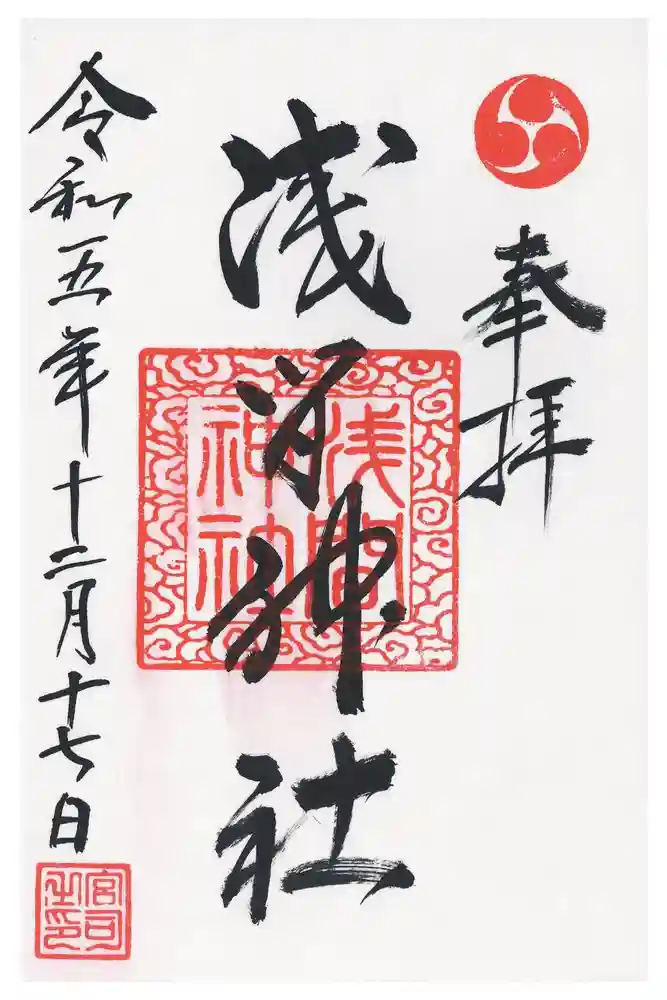 奉拝
浅間神社
浅間
神社
令和五年十二月十七日
宮司
之印